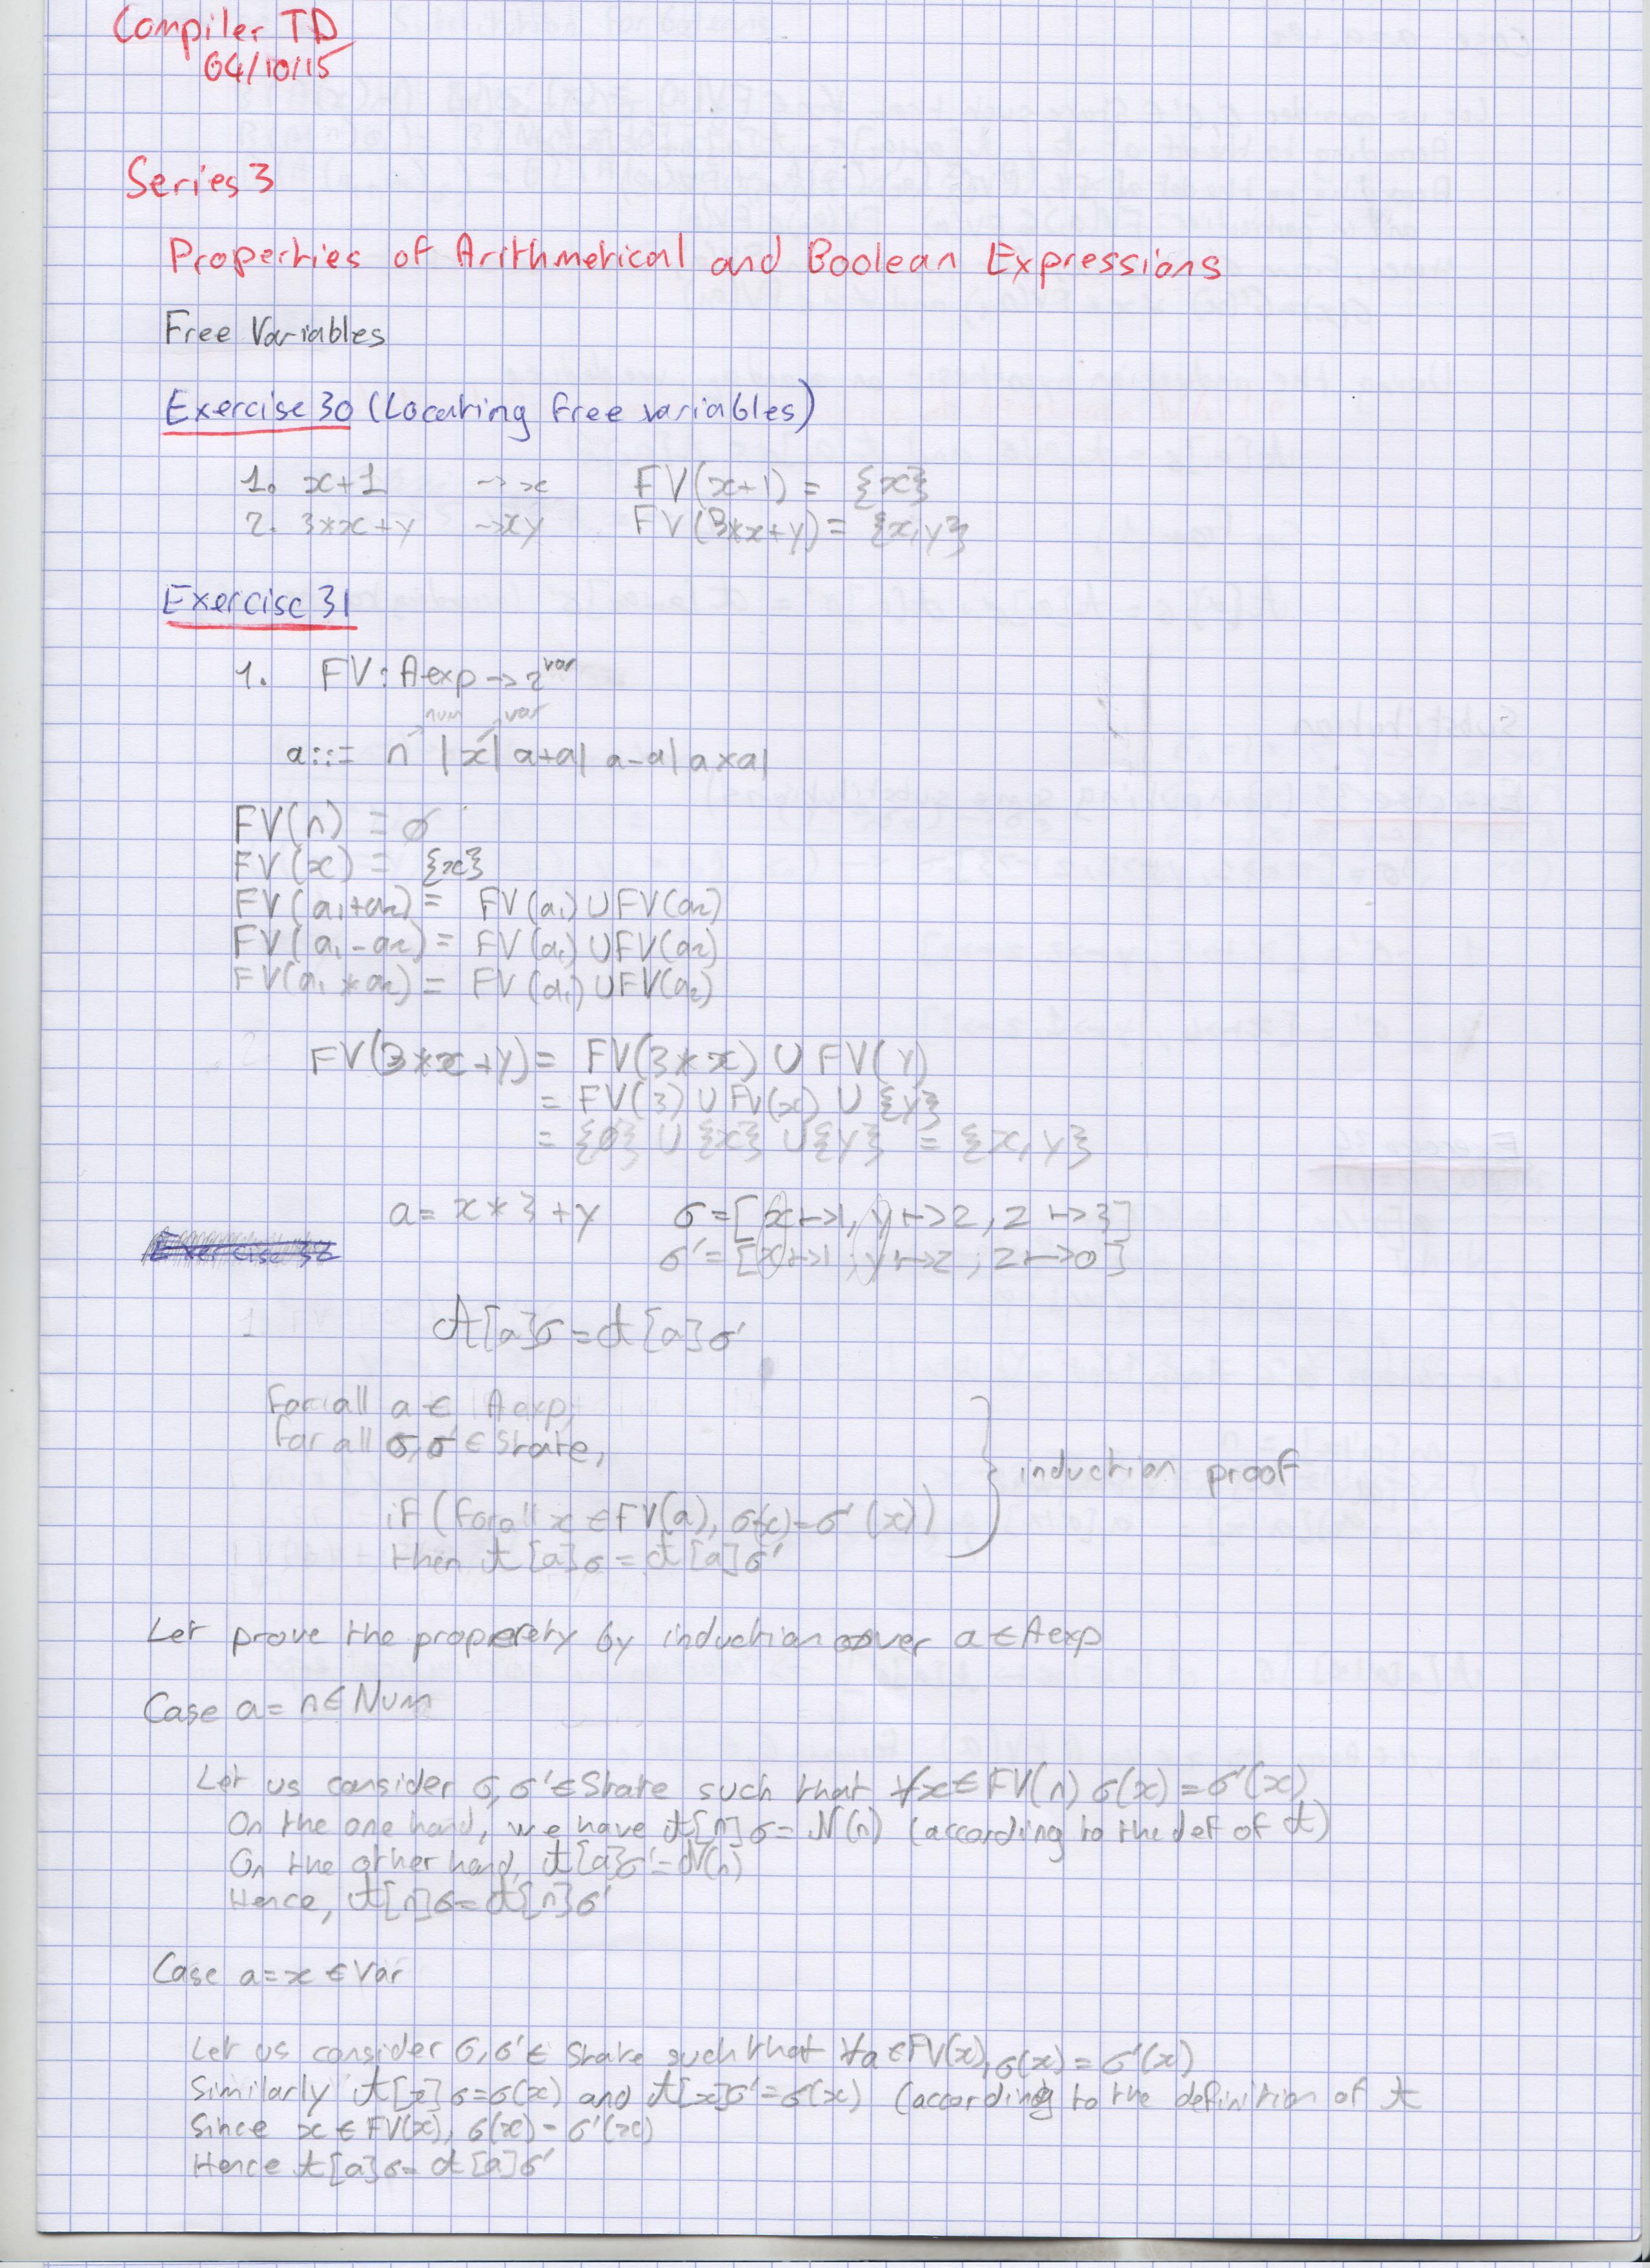 Compiler TD
04/10/15
Series 3
Properties of Arithmetical and Boolean Expressions
Free Variables
Exercise 30 (Locating free variables)
1. x+1 → x FV(x+1) = {x}
2. 3*x+y → xy FV(3*x+y) = {x,y}
Exercise 31
1. FV: Aexp → 2^var
num var
a::= n | x | a+a | a-a | a×a |
FV(n) = ∅
FV(x) = {x}
FV(a₁+a₂) = FV(a₁) ∪ FV(a₂)
FV(a₁-a₂) = FV(a₁) ∪ FV(a₂)
FV(a₁*a₂) = FV(a₁) ∪ FV(a₂)
FV(3*x+y) = FV(3*x) ∪ FV(y)
= FV(3) ∪ FV(x) ∪ {y}
= {∅} ∪ {x} ∪ {y} = {x,y}
a = x*3+y σ = [x↦1, y↦2, z↦3]
Exercise 32 σ' = [x↦1; y↦2; z↦0]
A[a]σ = A[a]σ'
For all a ∈ Aexp,
for all σ,σ' ∈ State,
induction proof
if (for all x ∈ FV(a), σ(x) = σ'(x))
then A[a]σ = A[a]σ'
Let prove the properety by induction over a ∈ Aexp
Case a = n ∈ Num
Let us consider σ,σ' ∈ State such that ∀x ∈ FV(n) σ(x) = σ'(x)
On the one hand, we have A[n]σ = N(n) (according to the def of A)
On the other hand, A[a]σ' = N(n)
Hence, A[n]σ = A[n]σ'
Case a = x ∈ Var
Let us consider σ,σ' ∈ State such that ∀a ∈ FV(x), σ(x) = σ'(x)
Similarly A[x]σ = σ(x) and A[x]σ' = σ(x) (according to the definition of A
Since x ∈ FV(x), σ(x) = σ'(x)
Hence A[a]σ = A[a]σ'